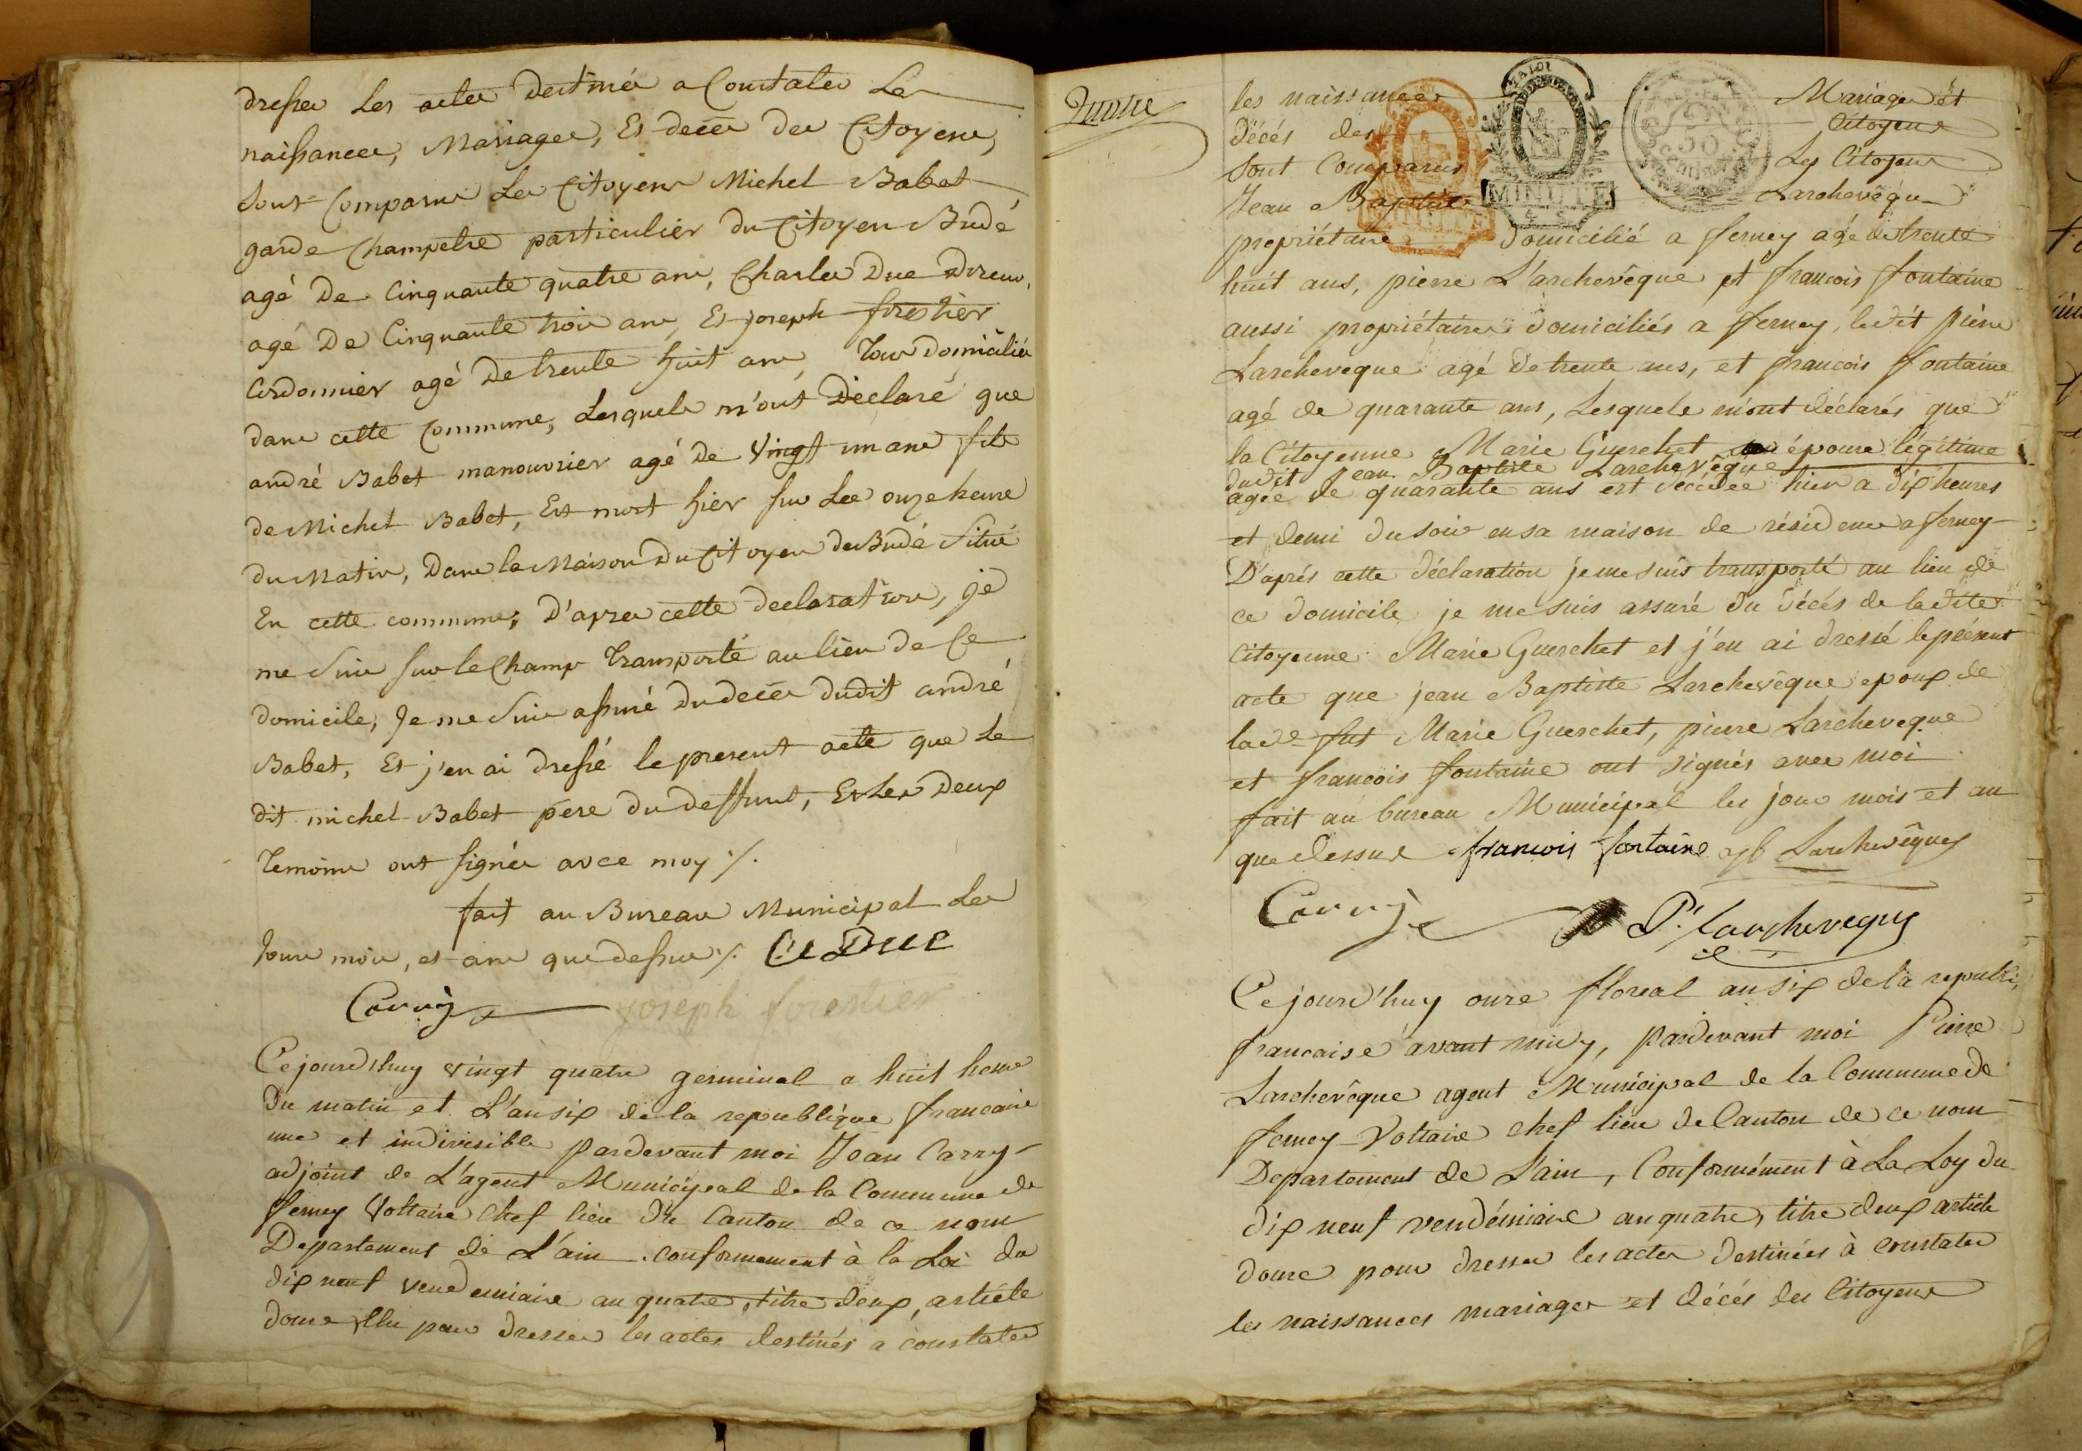 dresser les actes destinés a Constater Les
naissances, Mariages, Et deces des Citoyens,
Sont Comparus les Citoyens Michel Babet
garde Champetre particulier du Citoyen Budé
agé De Cinquante quatre ans, Charles Duc
agé De Cinquante trois ans, Et joseph forestier
Cordonnier agé De trente huit ans, Tous Domiciliés
dans cette Commune, Lesquels m'ont Déclaré que
andré Babet manouvrier agé De Vingt un ans fils
de Michel Babet, Est mort hier sur Les onze heures
du Matin, Dans la Maison Du Citoyen De Budé Situé
En cette commune; D'apres cette declaration, je
me Suis sur le Champ Transporté au lieu de Ce
domicile, Je me Suis assuré Du deces dudit andré
Babet, Et j'en ai dressé le present acte que Le
dit michel Babet père Du deffunt, Et Les Deux
Temoins ont signés avec moy ./.
fait au Bureau Municipal Les
Jour mois, et ans que dessus ./. Ce Duc
Carry joseph forestier
Cejourd'huy vingt quatre germinal a huit heures
Du matin et L'an six de la republique francaise
une et indivisible pardevant moi Jean Carry
adjoint de L'agent Municipal de la Commune de
ferney Voltaire Chef lieu De Canton de ce nom
Departement de L'ain conformement à la Loi du
dix neuf vendemiaire an quatre, titre deux, article
douze, Elu pour dresser les actes destinés a constater
les naissances Mariages et
Décés des Citoyens
Sont Comparus Les Citoyens
Jean Baptiste Larchevêque
MINUTE
MINUTE
propriétaire Domicilié a ferney agé de trente
huit ans, pierre L'archevêque et francois fontaine
aussi propriétaires domiciliés a ferney, ledit pierre
Larcheveque agé de trente ans, et francois fontaine
agé de quarante ans, Lesquels m'ont déclarés que
la Citoyenne Marie Guerchet épouse légitime
dudit Jean Baptiste Larchevêque
agée de quarante ans est décédée hier a dix heures
et demi du soir en sa maison de résidence a ferney
D'aprés cette déclaration je me suis transporté au lieu de
ce domicile je me suis assuré du décés de ladite
Citoyenne Marie Guerchet et j'en ai dressé le présent
acte que jean Baptiste Larchevêque epoux de
lad.e fut Marie Guerchet, pierre Larcheveque
et francois fontaine ont signés avec moi
fait au bureau Municipal les jour mois et an
que dessus francois fontaine Larchevêque
Carry P. Larcheveque
Ce jourd'huy onze floreal an six de la republi,
francaise avant midy, pardevant moi Pierre
Larchevêque agent Municipal de la Commune de
ferney Voltaire chef lieu de Canton de ce nom
Departement de L'ain, Conformément à La Loy du
dix neuf vendémiaire an quatre, titre deux article
douze pour dresser les actes destinées à constater
les naissances mariages et décés des Citoyens